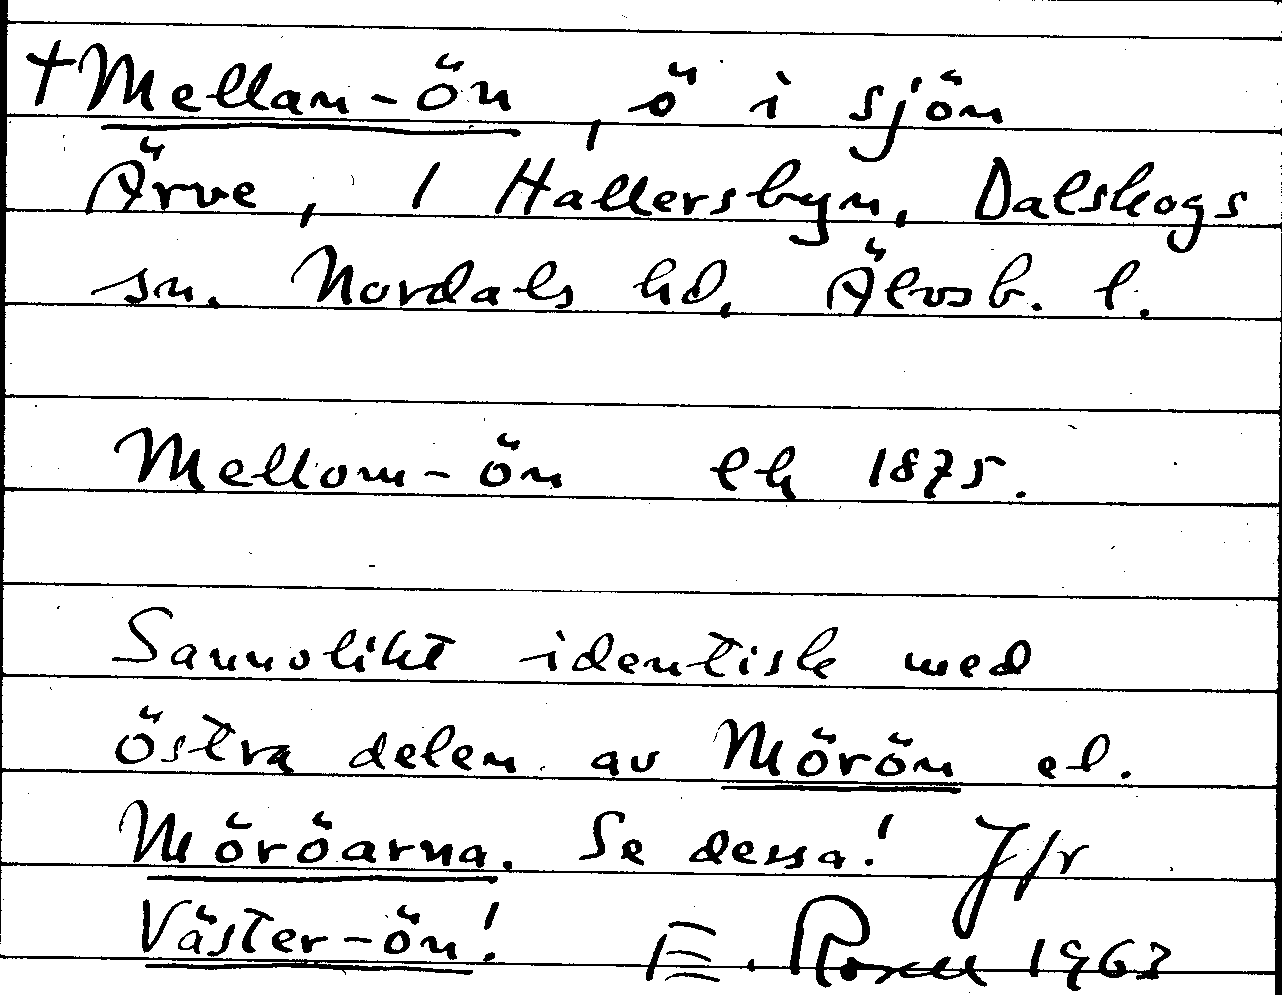 †Mellan-ön, ö i sjön
Ärve, 1 Hallersbyn, Dalskogs
sn. Nordals hd, Älvsb. l.
Mellom-ön ek 1875.
Sannolikt identisk med
östra delen av Mörön el.
Möröarna. Se dessa! Jfr
Väster-ön! E. Rosell 1963